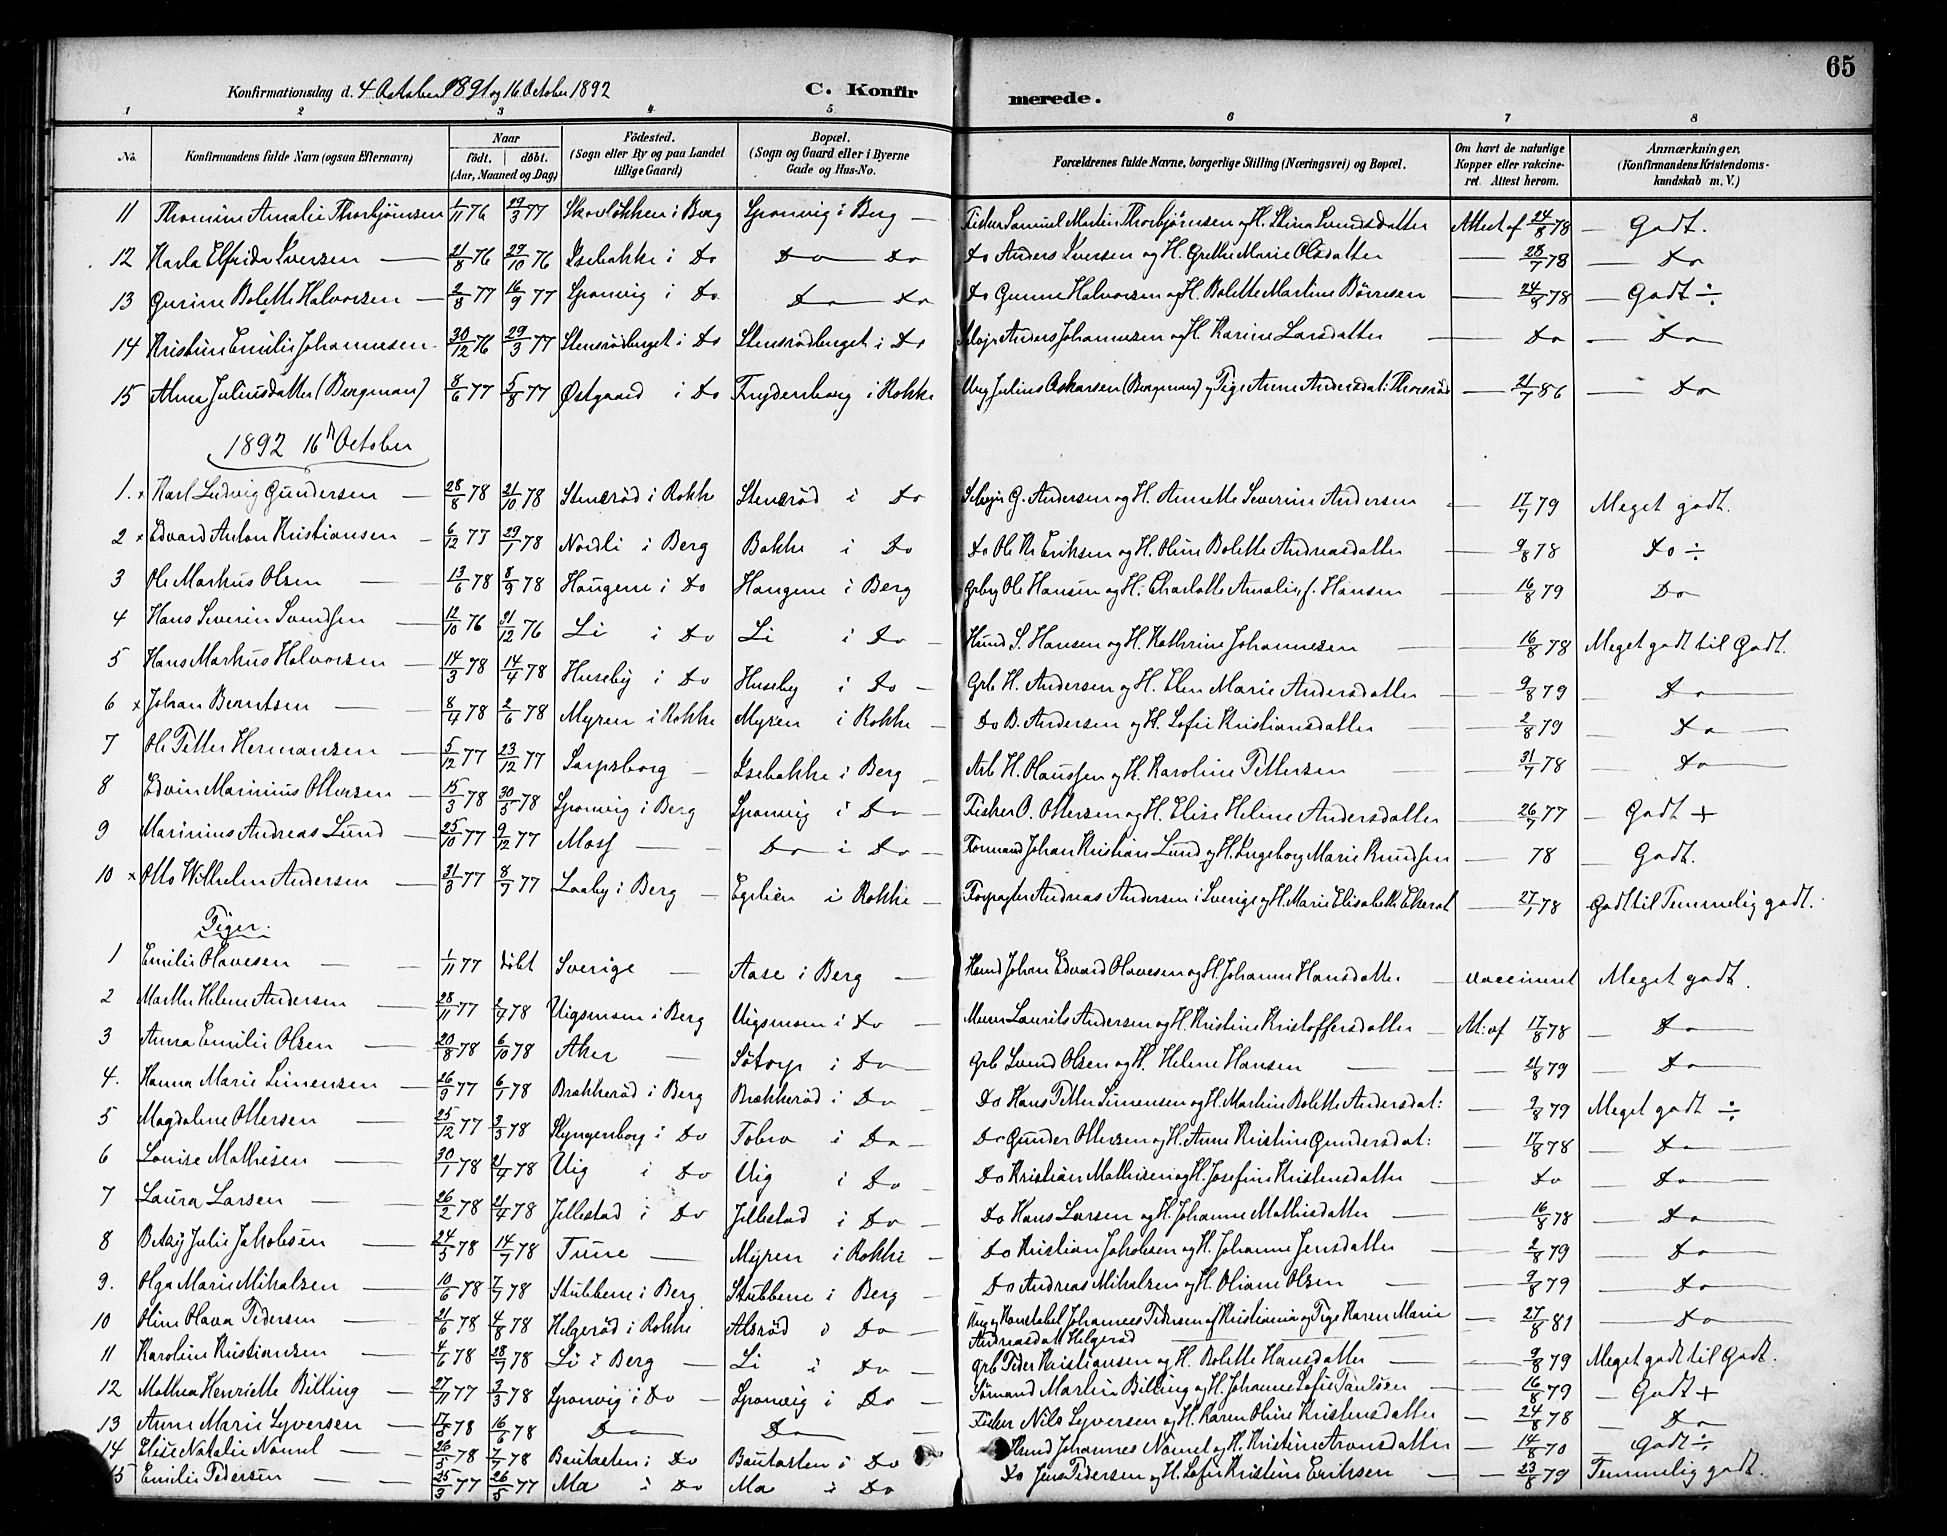 65
Konfirmationsdag d. 4 October 1891 og 16 October 1892 C. Konfirmerede.
1 2 3 4 5 6 7 8
No. Konfirmandens fulde Navn (ogsaa Efternavn) Naar födt. döbt. (Aar, Maaned og Dag) Födested. (Sogn eller By og paa Landet tillige Gaard) Bopæl. (Sogn og Gaard eller i Byerne Gade og Hus-No. Forældrenes fulde Navne, borgerlige Stilling (Næringsvei) og Bopæl. Om havt de naturlige Kopper eller vakcineret. Attest herom. Anmærkninger, (Konfirmandens Kristendomskundskab m. V.)
11 Thomine Amalie Thorbjönsen 1/11 76 29/3 77 Skovlökken i Berg Sponvig i Berg Fisker Samuel Martin Thorbjörnsen og H. Stina Svendsdatter Attest af 24/8 78 Godt.
12 Karla Elfrida Iversen 21/8 76 29/10 76 Isebakke i Do Do Do Do Anders Iversen og H. Grethe Marie Olsdatter 28/7 78 Do
13 Gurine Bolette Halvorsen 2/8 77 16/9 77 Sponvig i Do Do Do Do Gunne Halvorsen og H. Bolette Martine Börresen 24/8 78 Godt ÷
14 Kristine Emilie Johannesen 30/12 76 29/3 77 Stensrödberget i Do Stensrödberget i Do Selvejr Anders Johannesen og H. Karine Larsdatter Do Do
15 Alma Juliusdatter (Bergman) 8/6 77 5/8 77 Østgaard i Do Frydenborg i Rokke Ung Julius Oskarsen (Bergman) og Pige Anne Andersdat: Thorsröd 21/7 86 Do
1892 16 October
1. x Karl Ludvig Gundersen 28/8 78 21/10 78 Stensröd i Rokke Stensröd i Do Selvejr G. Andersen og H. Annette Severine Andersen 17/7 79 Meget godt.
2 x Edvard Anton Kristiansen 6/12 77 29/1 78 Nordli i Berg Bakke i Do Do Ole Kr. Eriksen og H. Oline Bolette Andreasdatter 9/8 78 Do ÷
3 Ole Markus Olsen 13/6 78 8/9 78 Haugene i Do Haugene i Berg Grbrg Ole Hansen og H. Charlotte Amalie, f. Hansen 16/8 79 Do
4 Hans Severin Svendsen 12/10 76 31/12 76 Li i Do Li i Do Husmd S. Hansen og H. Kathrine Johannesen 16/8 78 Meget godt til Godt.
5 Hans Markus Halvorsen 14/3 78 14/4 78 Huseby i Do Huseby i Do Grb H. Andersen og H. Elen Marie Andersdatter 9/8 79 Do
6 x Johan Berntsen 8/4 78 2/6 78 Myren i Rokke Myren i Rokke Do B. Andersen og H. Sofie Kristiansdatter 2/8 79 Do
7 Ole Petter Hermansen 5/12 77 23/12 77 Sarpsborg Isebakke i Berg Arb H. Clausen og H. Karoline Pettersen 31/7 78 Do
8 Edvin Marinius Ottersen 15/3 78 30/5 78 Sponvig i Berg Sponvig i Do Fisker O. Ottersen og H. Elise Helene Andersdatter 26/7 77 Godt +
9 Marinius Andreas Lund 25/10 77 9/12 77 Moss Do i Do Formand Johan Kristian Lund og H. Ingeborg Marie Knudsen 78 Godt.
10 x Otto Wilhelm Andersen 31/3 77 8/7 77 Laaby i Berg Eglien i Rokke Forpagter Andreas Andersen i Sverige og H. Marie Elisabeth Ekerot 27/1 78 Godt til Temmelig godt.
Piger.
1 Emilie Olavesen 1/11 77 döbt Sverige Aase i Berg Husmd Johan Edvard Olavesen og H. Johanne Hansdatter vaccineret Meget godt.
2 Marthe Helene Andersen 28/11 77 2/4 78 Vigsmoen i Berg Vigsmoen i Do Murer Laurits Andersen og H. Kristine Kristoffersdatter At: af 17/8 78 Do
3 Anna Emilie Olsen 20/8 78 6/10 78 Aker Sötorp i Do Grb Svend Olsen og H. Helene Hansen 21/8 79 Do
4. Hanna Marie Simensen 26/9 77 6/1 78 Brækkeröd i Berg Brækkeröd i Do Do Hans Petter Simensen og H. Martine Bolette Andersdat: 9/8 79 Meget godt ÷
5 Magdalene Ottersen 25/12 77 3/3 78 Slyngenborg i Do Tobro i Do Do Gunder Ottersen og H. Anne Kristine Gundersdat: 17/8 78 Do
6 Louise Mathisen 30/1 78 21/4 78 Vig i Do Vig i Do Do Kristian Mathisen og H. Josefine Kristensdatter Do Do
7 Laura Larsen 26/2 78 21/4 78 Jellestad i Do Jellestad i Do Do Hans Larsen og H. Johanne Mathisdatter 16/8 78 Do
8 Betzy Julie Jakobsen 24/5 78 14/7 78 Tune Myren i Rokke Do Kristian Jakobsen og H. Johanne Jensdatter 2/8 79 Do
9. Olga Marie Mikalsen 10/6 78 7/7 78 Stubbene i Berg Stubbene i Berg Do Andreas Mikalsen og H. Oliane Olsen 9/8 79 Do
10 Oline Olava Pedersen 21/6 78 4/8 78 Helgeröd i Rokke Alsröd i Do Ung Konstabel Johannes Pedersen af Kristiania og Pige Karen Marie Andreasdatt Helgeröd 27/8 81 Do
11 Karoline Kristiansen 4/6 78 28/7 78 Li i Berg Li i Do Grb Peder Kristiansen og H. Bolette Hansdatter 9/8 79 Meget godt til Godt.
12 Mathea Henriette Billing 27/11 77 3/3 78 Sponvig i Do Sponvig i Do Sömand Martin Billing og H. Johanne Sofie Paulsen 16/8 79 Godt +
13 Anne Marie Syversen 17/8 78 16/6 78 Do Do Fisker Nils Syversen og H. Karen Oline Kristensdatter 24/8 78 Do
14 Elise Natalie Nomel 26/5 78 7/7 78 Bautasten i Do Bautasten i Do Husmd Johannes Nomel og H. Kristine Aronsdatter 14/8 70 Godt ÷
15 Emilie Pedersen 25/3 77 26/5 77 Mo i Do Mo i Do Do Jens Pedersen og H. Sofie Kristine Eriksen 23/8 79 Temmelig godt.